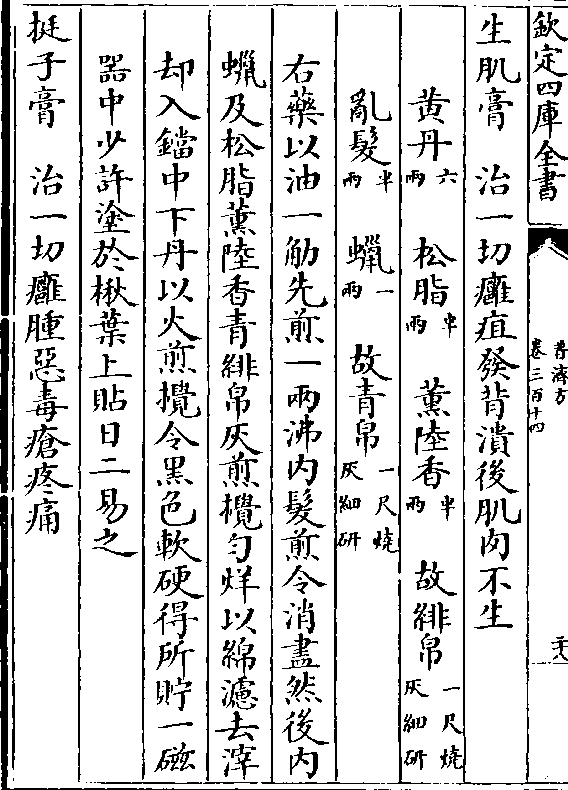 欽定四庫全書
普濟方
卷三百十四
生肌膏　治一切癰疽發背潰後肌肉不生
黄丹六兩　松脂半兩　薫陸香半兩　故緋帛一尺燒灰細研
亂髮半兩　蠟一兩　故青帛一尺燒灰細研
右藥以油一觔先煎一兩沸内髮煎令消盡然後内
蠟及松脂薫陸香青緋帛灰煎攪勻烊以綿濾去滓
却入鐺中下丹以火煎攪令黑色軟硬得所貯一磁
器中少許塗於楸葉上貼日二易之
挺子膏　治一切癰腫惡毒瘡疼痛